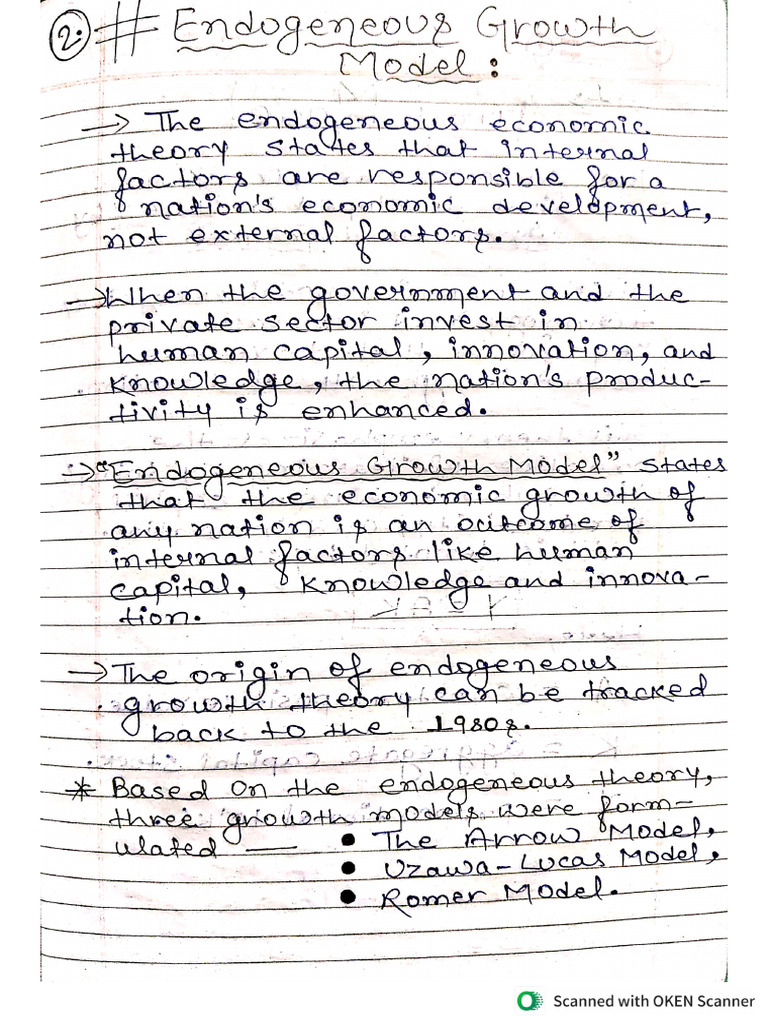 2. # Endogeneous Growth
Model:
→ The endogeneous economic
theory states that internal
factors are responsible for a
nation's economic development,
not external factors.
→ When the government and the
private sector invest in
human capital, innovation, and
knowledge, the nation's produc-
tivity is enhanced.
→ "Endogeneous Growth Model" states
that the economic growth of
any nation is an outcome of
internal factors like human
capital, knowledge and innova-
tion.
→ The origin of endogeneous
growth theory can be tracked
back to the 1980s.
* Based on the endogeneous theory,
three growth models were form-
ulated — • The Arrow Model,
• Uzawa-Lucas Model,
• Romer Model.
Scanned with OKEN Scanner